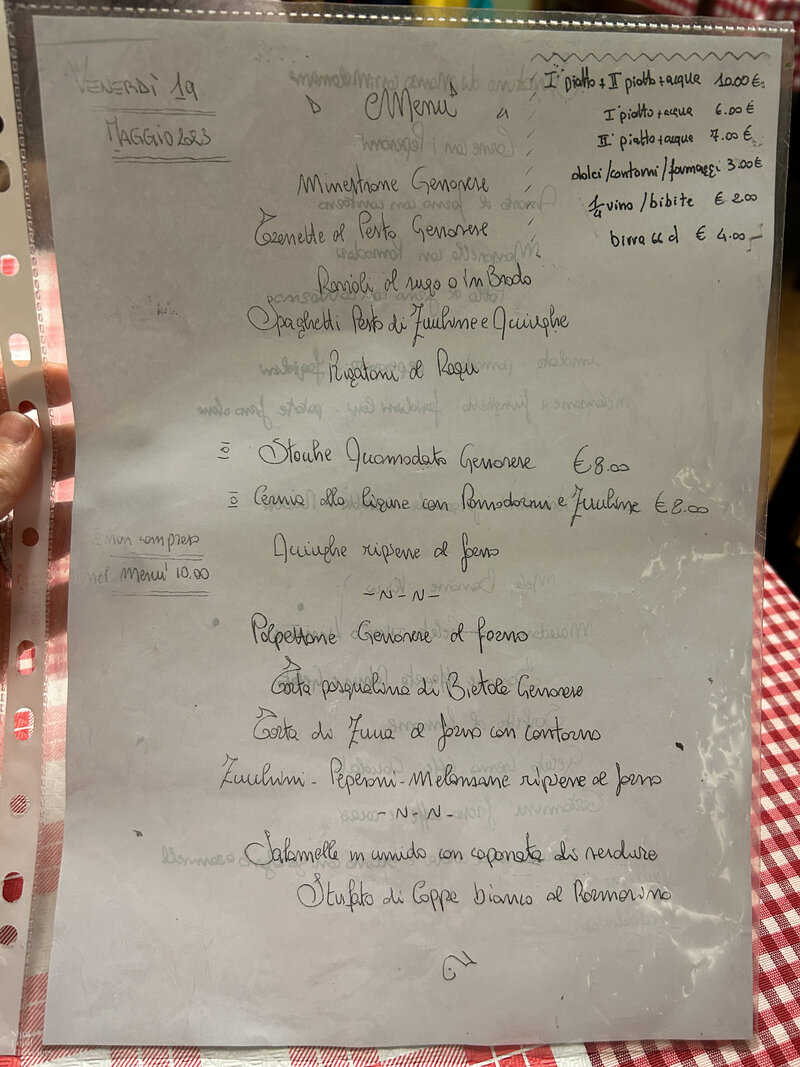 VENERDÌ 19
MAGGIO 2023
Menù
I° piatto + II piatto + acqua 10.00 €
I° piatto + acqua 6.00 €
II° piatto + acqua 7.00 €
dolci/contorni/formaggi 3.00 €
1/4 vino / bibite € 2.00
birra 66 cl € 4.00
Minestrone Genovese
Trenette al Pesto Genovese
Ravioli al sugo o in Brodo
Spaghetti Pesto di Zucchine e Acciughe
Rigatoni al Ragù
Stocche Accomodato Genovese € 8.00
Cernia alla ligure con Pomodorini e Zucchine € 8.00
non compreso
nel menù 10.00
Acciughe ripiene al forno
- N - N -
Polpettone Genovese al forno
Torta pasqualina di Bietole Genovese
Torta di Zucca al forno con contorno
Zucchini - Peperoni - Melanzane ripiene al forno
- N - N -
Salamelle in umido con caponata di verdure
Stufato di Coppa bianco al Rosmarino